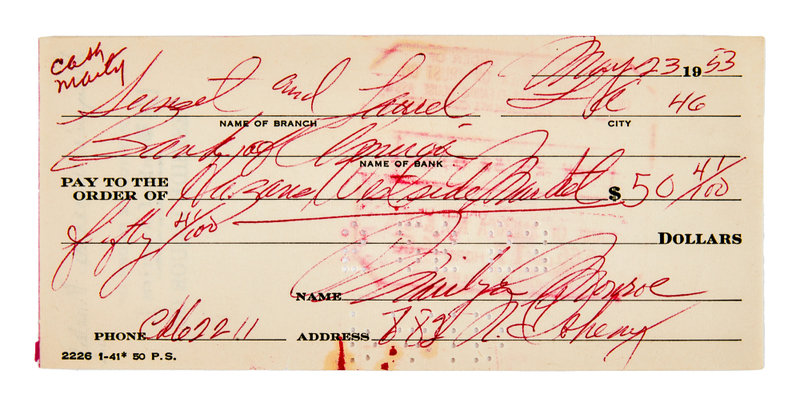 Cash
Marily
May 23 1953
Sunset and Laurel LA 46
NAME OF BRANCH CITY
Bank of America
NAME OF BANK
PAY TO THE ORDER OF Westside Market $ 50 41/100
fifty 41/100 DOLLARS
NAME Marilyn Monroe
PHONE CR62211 ADDRESS 882 N. Doheny
2226 1-41* 50 P.S.